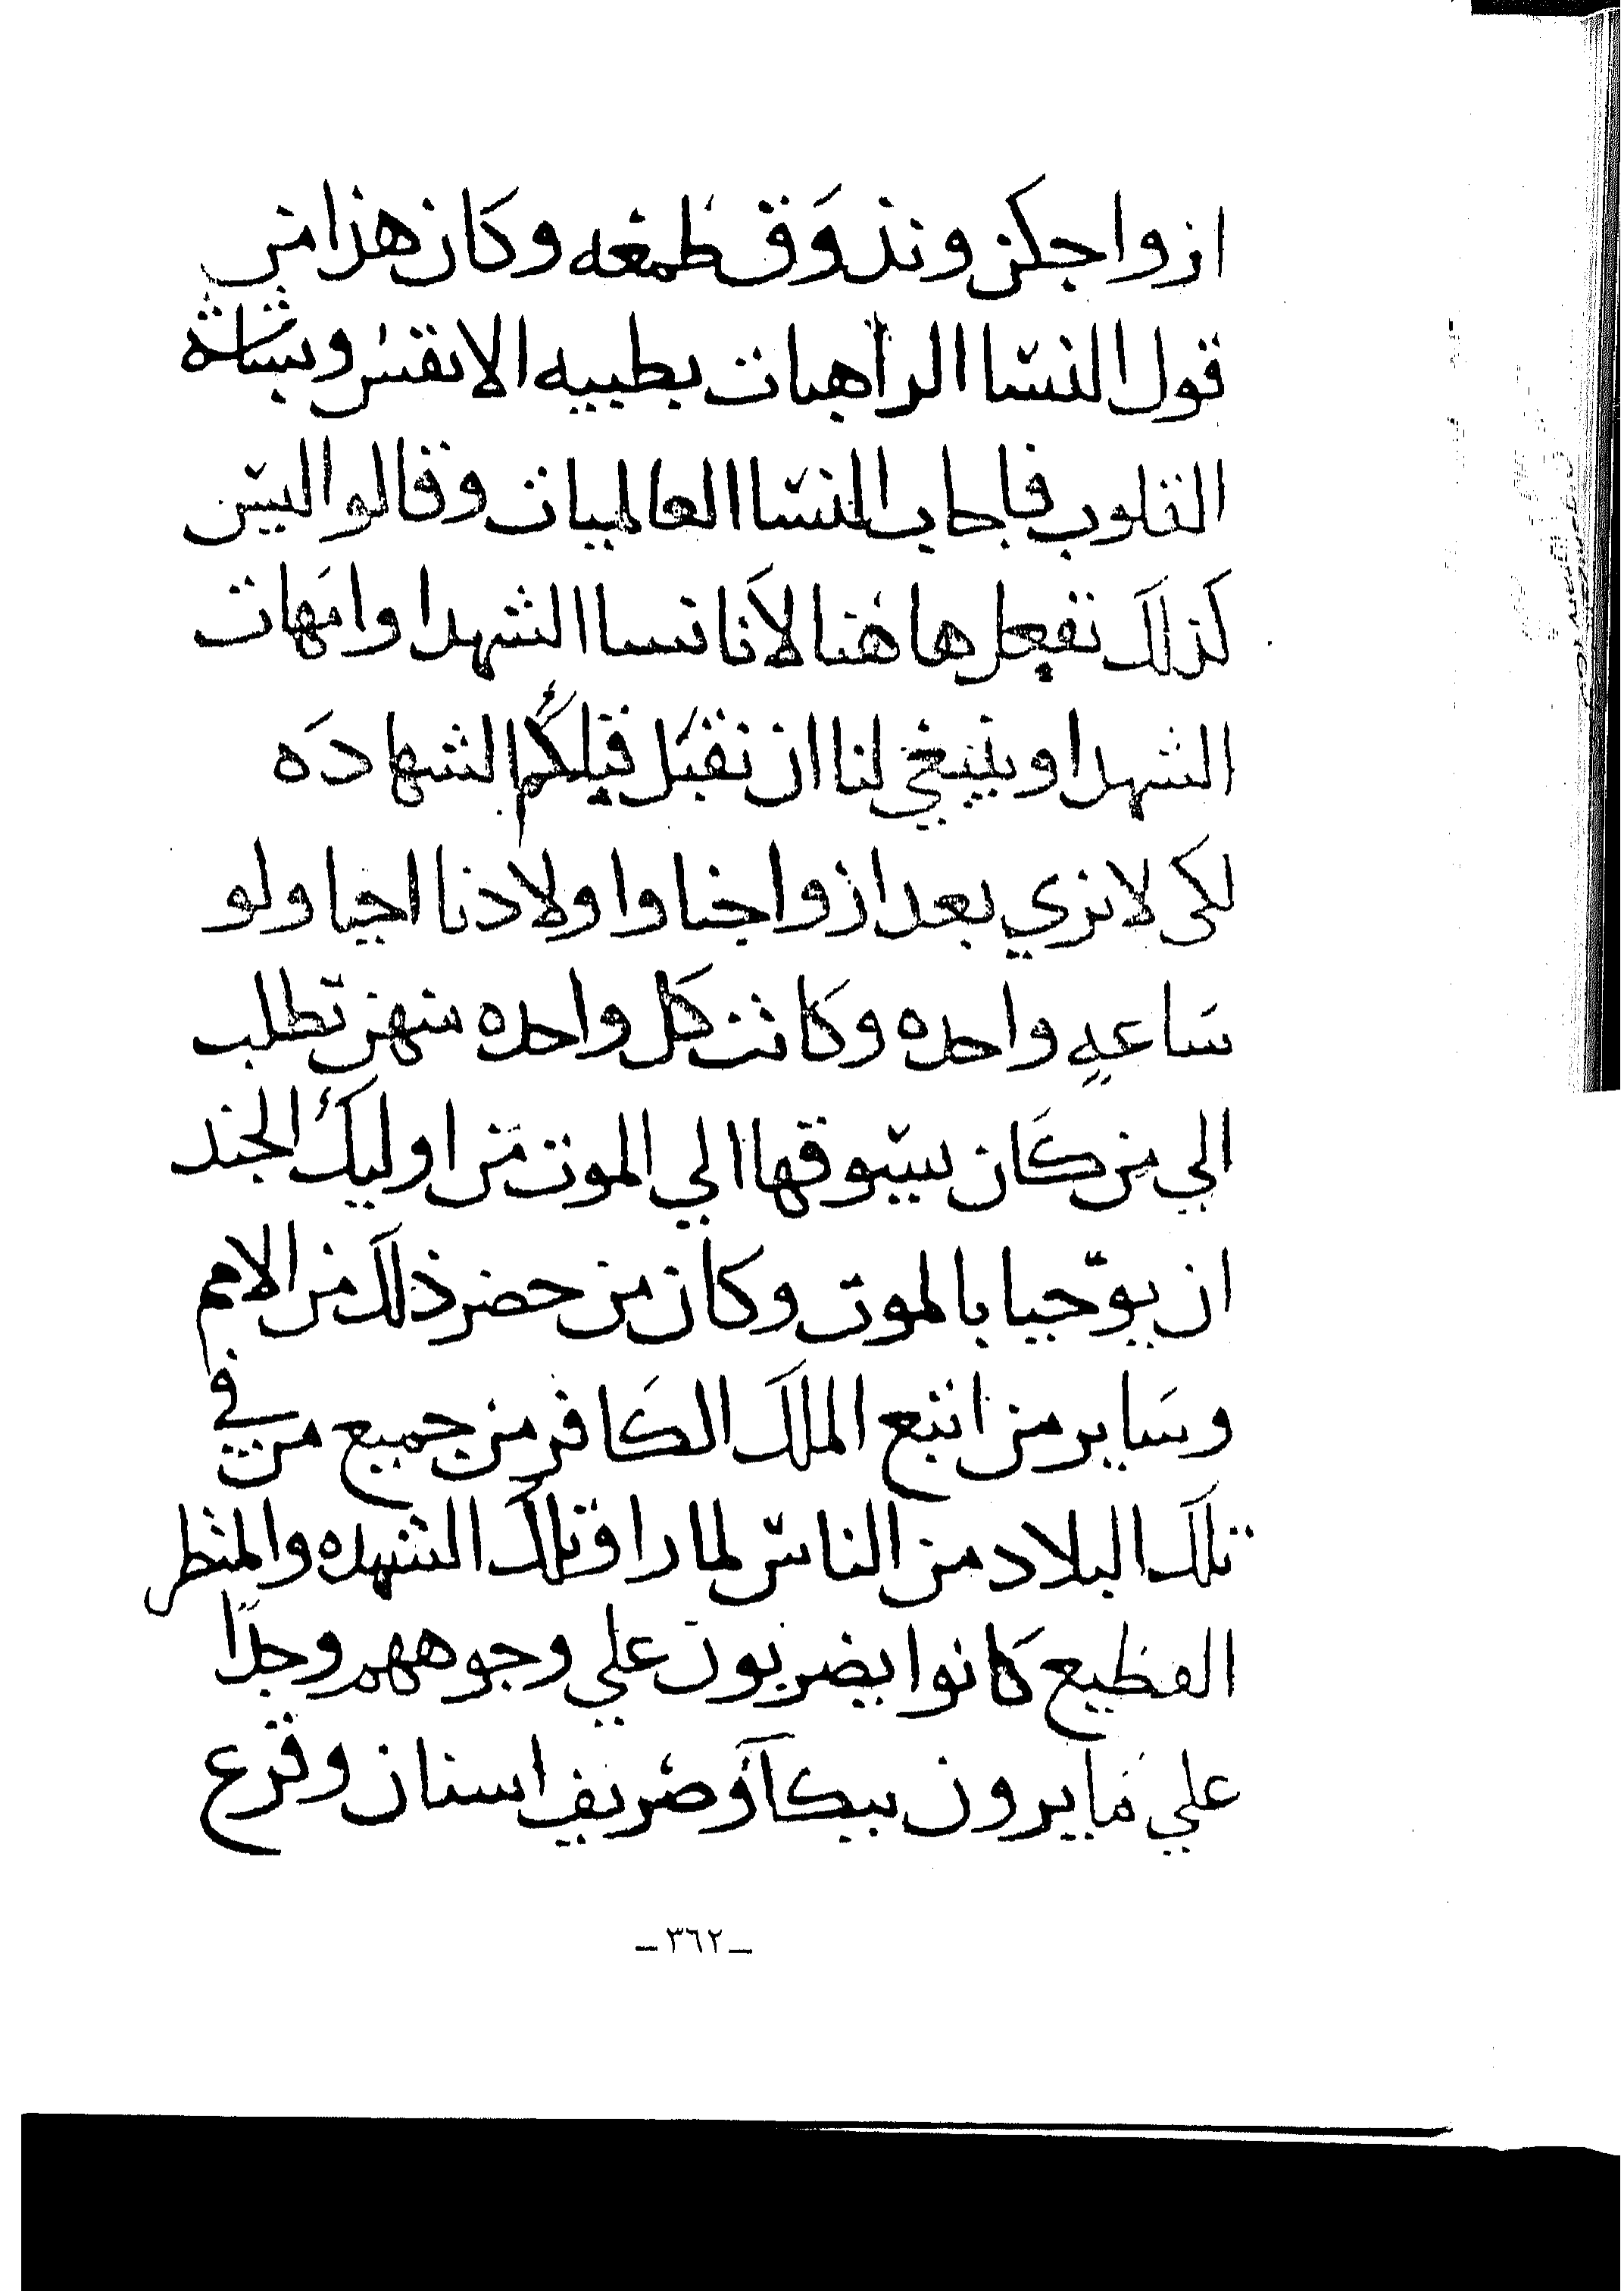 ازواجكن ونذوق طمعه وكان هذا من
قول النسا الراهبات بطيبه الانفس وبشاشة
القلوب فاجاب النسا العالميات وقالو اليس
كذلك نفعل هاهنا لانا نسا الشهدا وامهات
الشهدا وينبغي لنا ان نقبل قبلكم الشهاده
لكى لا نري بعد ازواجنا واولادنا احيا ولو
ساعه واحده وكانت كل واحده منهن تطلب
الي من كان يسوقها الي الموت من اوليك الجند
ان يوحيا بالموت وكان من حضر ذلك من الامم
وساير من اتبع الملك الكافر من جميع من في
تلك البلاد من الناس لما راو تلك الشهده والمنظر
الفظيع كانوا يضربون علي وجوههم وجدًا
علي ما يرون ببكآ وصريف اسنان وقرع
ـ٣٦٢ـ